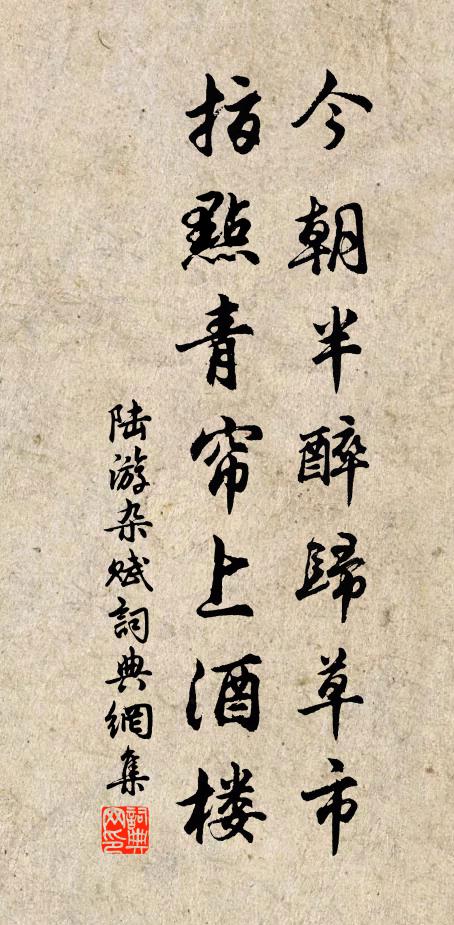 今朝半醉歸草市
指點青帘上酒楼
陆游杂赋詞典網集
詞典網印